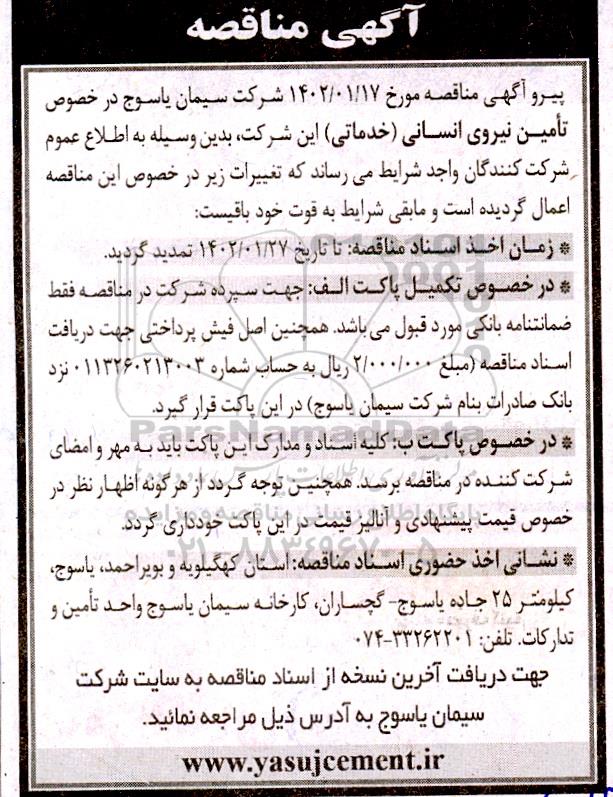 آگهی مناقصه
پیرو آگهی مناقصه مورخ ۱۴۰۲/۰۱/۱۷ شرکت سیمان یاسوج در خصوص
تأمین نیروی انسانی (خدماتی) این شرکت، بدین وسیله به اطلاع عموم
شرکت کنندگان واجد شرایط می رساند که تغییرات زیر در خصوص این مناقصه
اعمال گردیده است و مابقی شرایط به قوت خود باقیست:
* زمان اخذ اسناد مناقصه: تا تاریخ ۱۴۰۲/۰۱/۲۷ تمدید گردید.
* در خصوص تکمیل پاکت الف: جهت سپرده شرکت در مناقصه فقط
ضمانتنامه بانکی مورد قبول می باشد. همچنین اصل فیش پرداختی جهت دریافت
اسناد مناقصه (مبلغ ۲/۰۰۰/۰۰۰ ریال به حساب شماره ۰۱۱۳۲۶۰۲۱۳۰۰۳ نزد
بانک صادرات بنام شرکت سیمان یاسوج) در این پاکت قرار گیرد.
ParsNamadData
* در خصوص پاکت ب: کلیه اسناد و مدارک این پاکت باید به مهر و امضای
شرکت کننده در مناقصه برسد. همچنین توجه گردد از هرگونه اظهار نظر در
خصوص قیمت پیشنهادی و آنالیز قیمت در این پاکت خودداری گردد.
۰۲۱-۸۸۳۴۹۶۷۰-۵
* نشانی اخذ حضوری اسناد مناقصه: استان کهگیلویه و بویراحمد، یاسوج،
کیلومتر ۲۵ جاده یاسوج- گچساران، کارخانه سیمان یاسوج واحد تأمین و
تدارکات. تلفن: ۳۳۲۶۲۲۰۱-۰۷۴
جهت دریافت آخرین نسخه از اسناد مناقصه به سایت شرکت
سیمان یاسوج به آدرس ذیل مراجعه نمائید.
www.yasujcement.ir